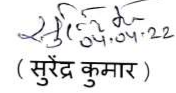 04.04.22
( सुरेंद्र कुमार )